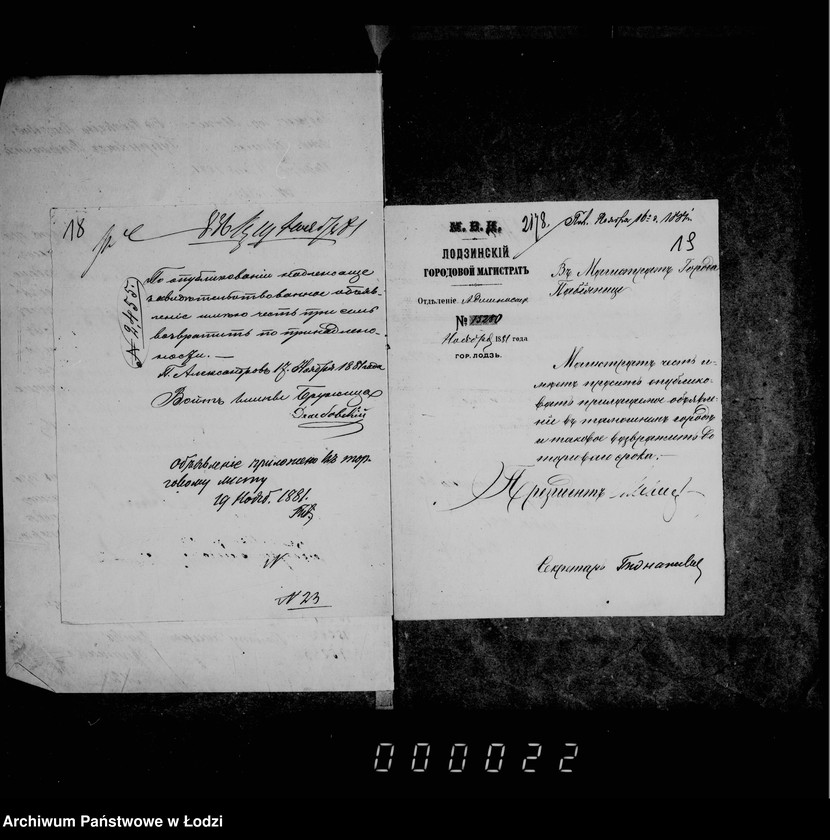 18
№ 9,455.
По опубликовании надлежаще
засвидѣтельствованное объяв-
леніе имѣю честь при семъ
возвратить по принадлеж-
ности. —
П. Александровъ 17 Ноября 1881 года
Войтъ гмины Бружица
Домбовскій
Объявленіе приложено къ тор-
говому листу
19 Нояб. 1881.
N 23
М. В. Д.
2178.
Ноября 16
19
ЛОДЗИНСКІЙ
ГОРОДОВОЙ МАГИСТРАТЪ
Отдѣленіе Админист
№ 15250
Ноября 1881 года
ГОР. ЛОДЗЬ.
Въ Магистратъ Города
Пабіяницы
Магистратъ честь и-
мѣетъ просить опублико-
вать прилагаемое объявле-
ніе въ тамошнемъ городѣ
и таковое возвратить до
срока. —
Президентъ
Секретарь
000022
Archiwum Państwowe w Łodzi